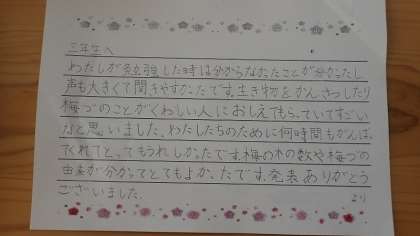 三年生へ
わたしが勉強した時は分からなかったことが分かったし
声も大きくて聞きやすかったです。生き物をかんさつしたり
梅づのことがくわしい人におしえてもらっていてすごい
なと思いました。わたしたちのために何時間もがんば
てくれてとってもうれしかったです。梅の木の数や梅づの
由来が分かってとてもよかったです。発表ありがとう
ございました。
より